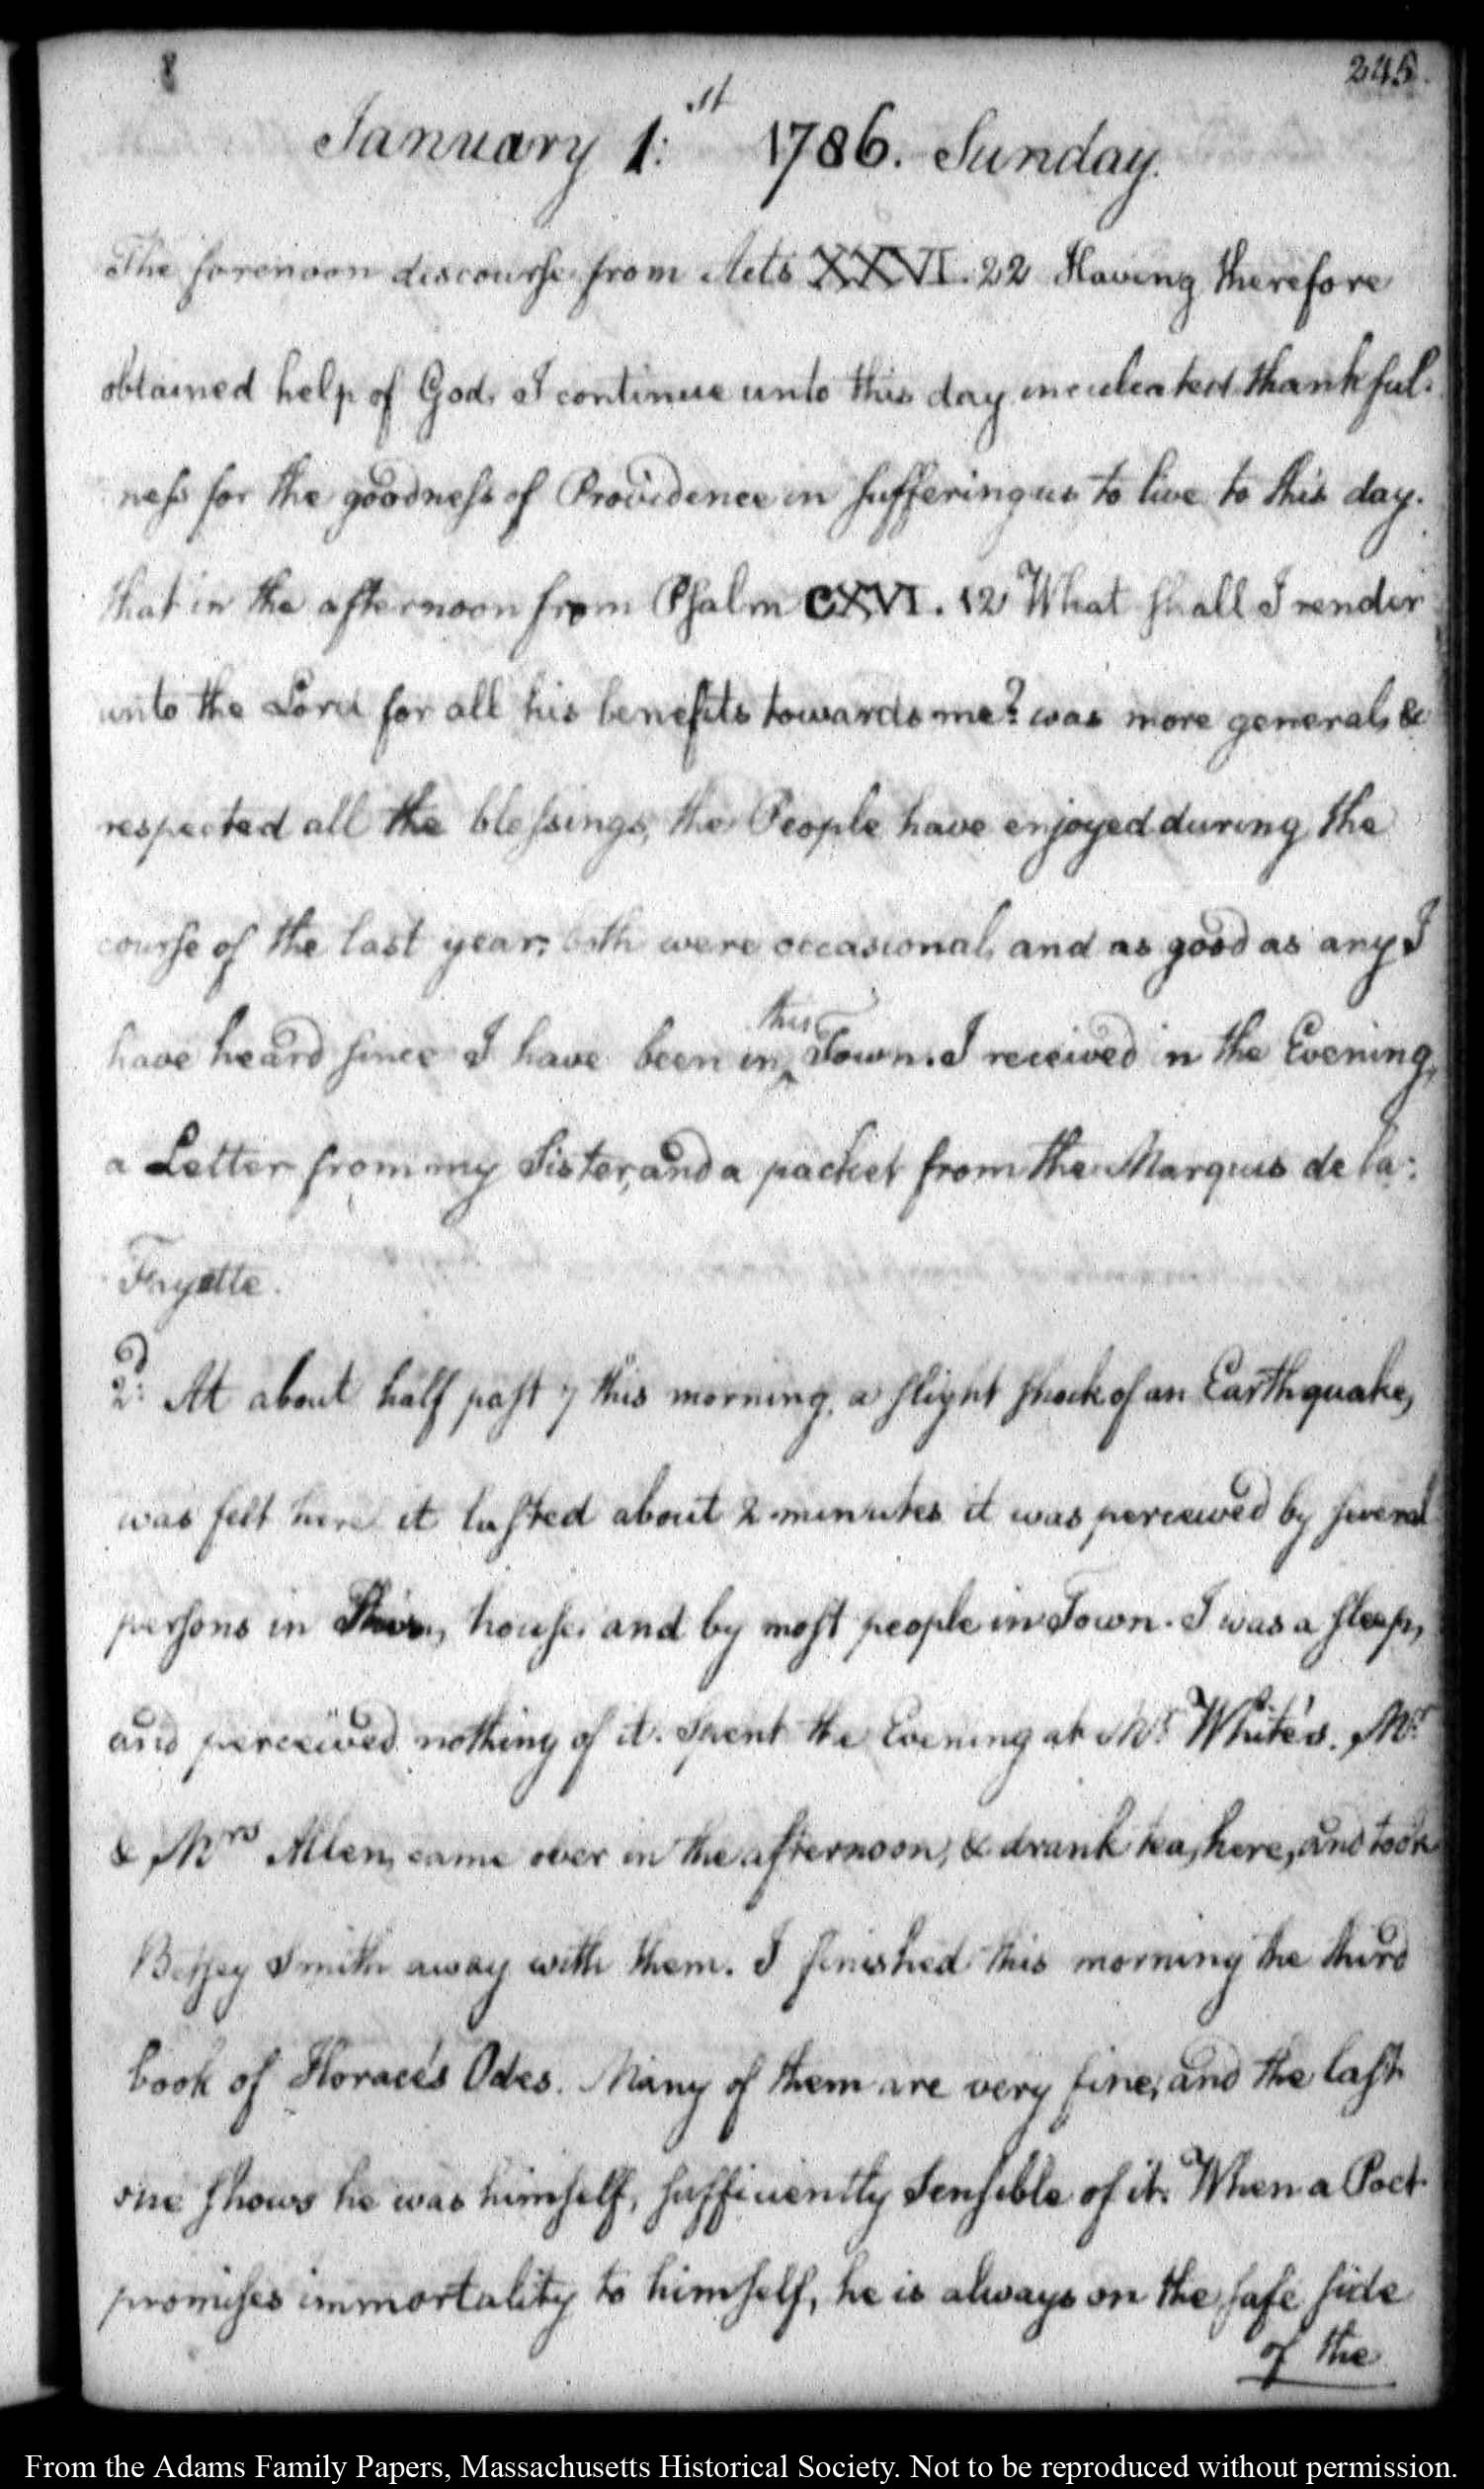 245.
January 1:st 1786. Sunday.
The forenoon discourse from Acts XXVI. 22 Having therefore
obtained help of God, I continue unto this day inculcated thankful-
ness for the goodness of Providence in suffering us to live to this day.
that in the afternoon from Psalm CXVI. 12 What shall I render
unto the Lord for all his benefits towards me? was more general, &
respected all the blessings, the People have enjoyed during the
course of the last year; both were occasional, and as good as any I
have heard since I have been in this Town. I received in the Evening,
a Letter from my Sister, and a packet from the Marquis de la-
Fayette.
2:d At about half past 7 this morning, a slight shock of an Earthquake,
was felt here it lasted about 2 minutes it was perceived by several
persons in house, and by most people in Town. I was a sleep,
and perceived nothing of it. Spent the Evening at Mr. White's. Mr.
& Mrs Allen, came over in the afternoon, & drank tea, here, and took
Betsey Smith away with them. I finished this morning the third
book of Horace's Odes. Many of them are very fine, and the last
one shows he was himself, sufficiently Sensible of it. When a Poet
promises immortality to himself, he is always on the safe side
of the
From the Adams Family Papers, Massachusetts Historical Society. Not to be reproduced without permission.